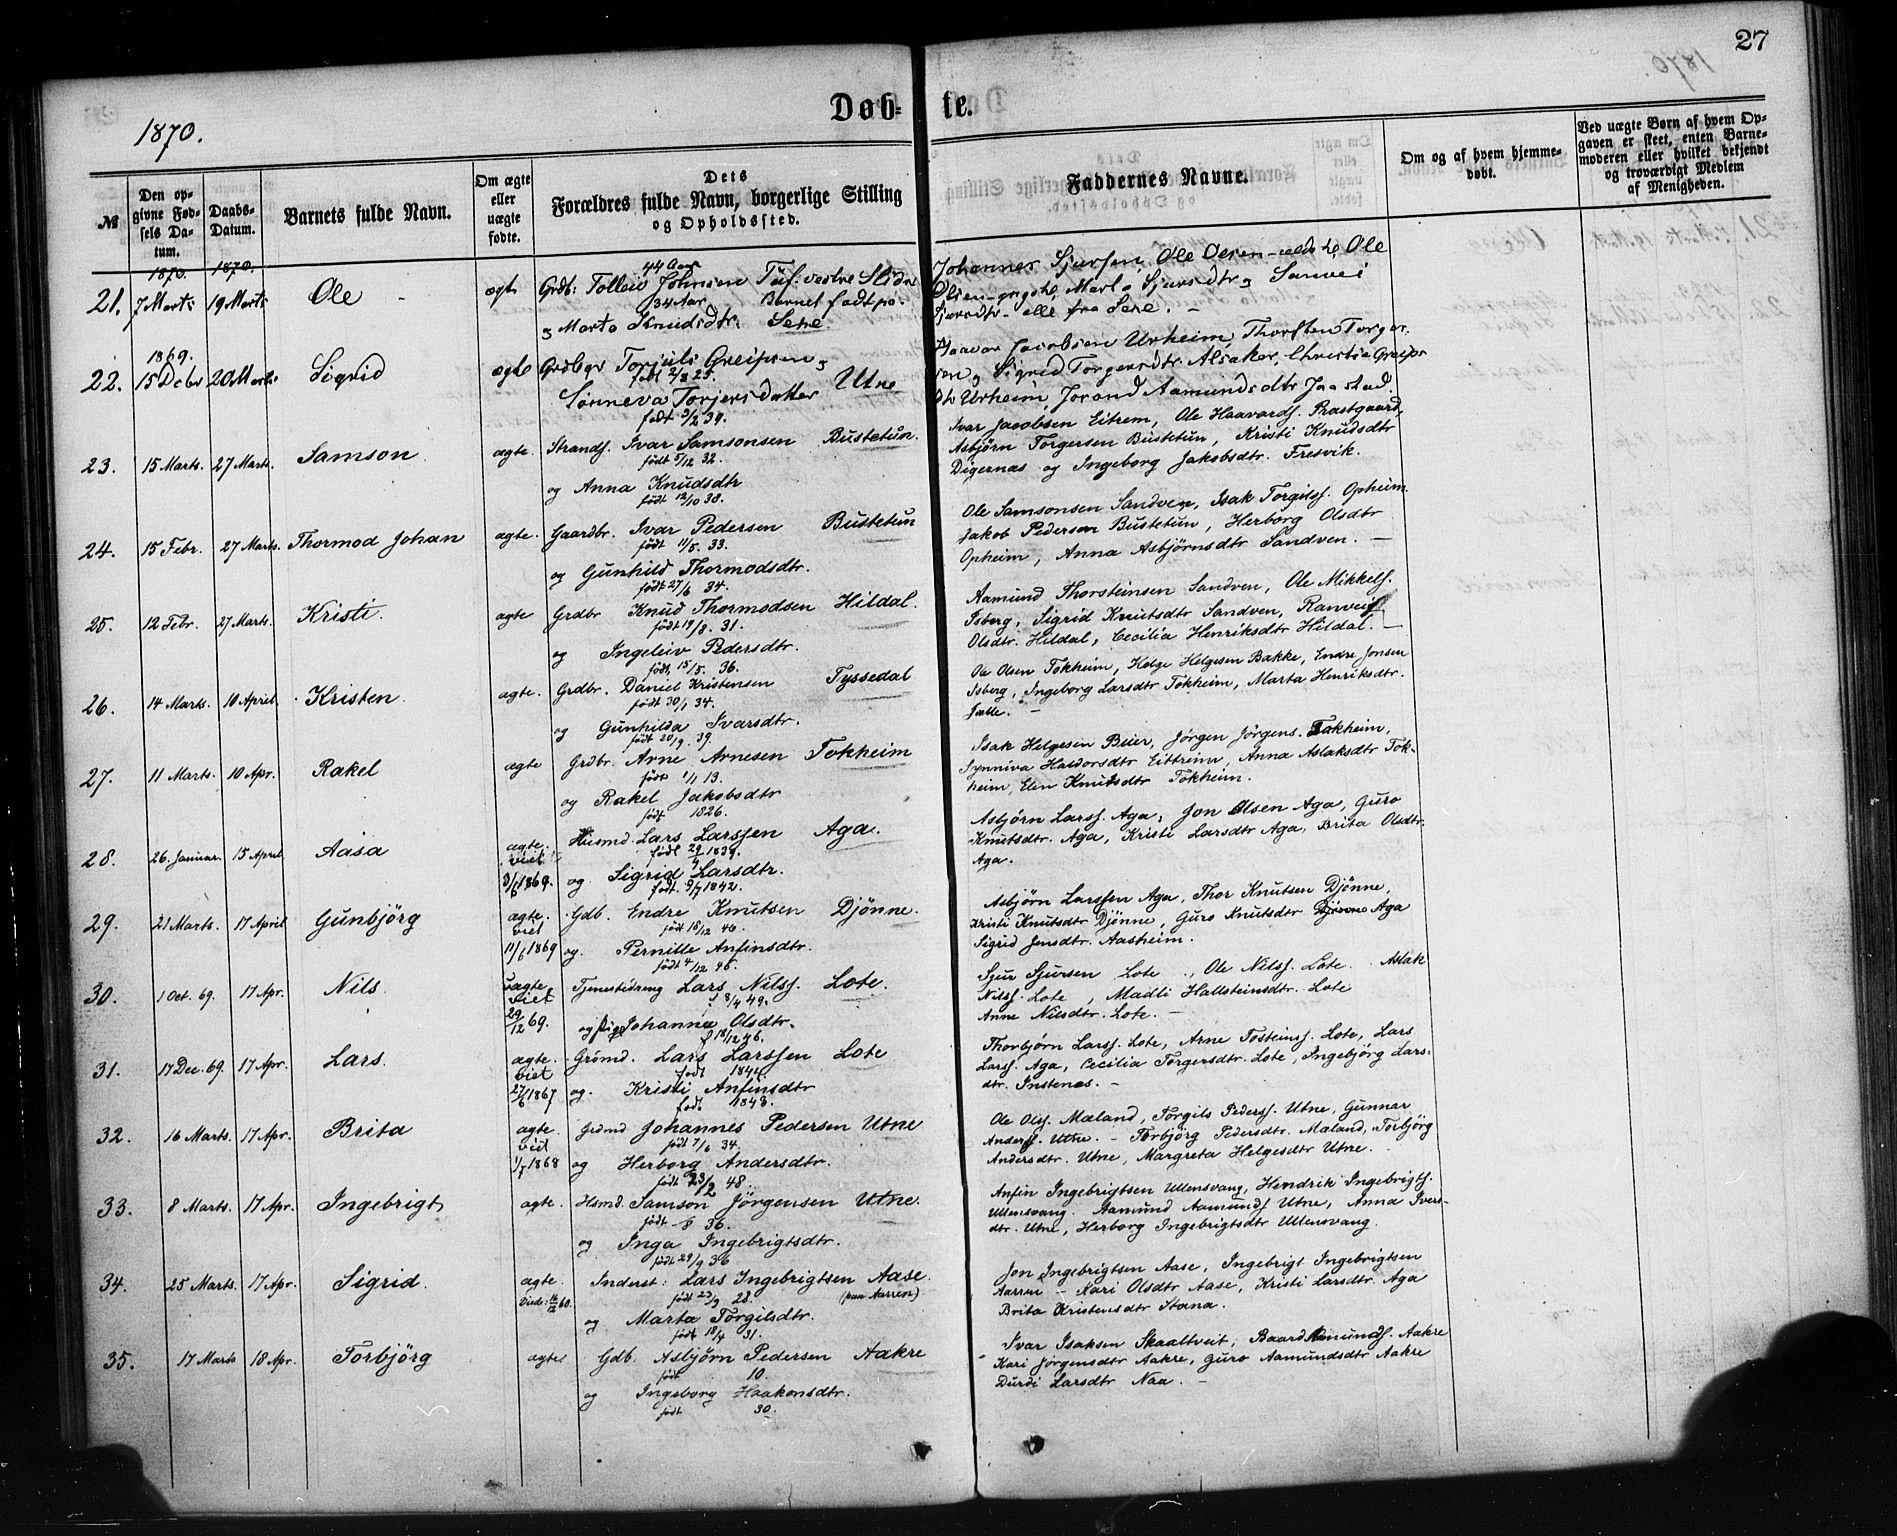 27
1870.
Døb-te.
№
Den opgivne Fødsels Datum.
Daabs-Datum.
Barnets fulde Navn.
Om ægte eller uægte fødte.
Dets Forældres fulde Navn, borgerlige Stilling og Opholdssted.
Faddernes Navne.
Om og af hvem hjemmedøbt.
Ved uægte Børn af hvem Opgaven er skeet, enten Barnemoderen eller hvilket bekjendt og troværdigt Medlem af Menigheden.
1870. 1870.
21. 7 Marts 19 Marts Ole ægte Grdb: Tolleiv Johnsen vestre Slidre
44 Aar
34 Aar Barnet født på
Marta Knudsdtr. Sexe
Johannes Sjursen, Ole Olsen - ældste, Ole
Olsen - yngste, Marta Sjursdtr
Sjursdtr - alle fra Sexe. -
1869.
22. 15 Dcbr 20 Marts Sigrid ægte Grdbgr Torjuls Greipsen
født 2/8 25.
Sønneva Torjersdatter Utne
født 9/2 39.
Haavar Jacobsen Urheim, Thorsten Torger-
sen, Sigrid Torgersdtr Alsaker, Christie Greips-
dtr Urheim, Jorand Aamundsdtr Jaastad.
23. 15 Marts. 27 Marts. Samson ægte. Strands. Ivar Samsonsen Bustetun.
født 5/12 32.
og Anna Knudsdtr
født 12/10 38.
Ivar Jacobsen Eitrem, Ole Haavards. Prastgaard,
Asbjörn Torgersen Bustetun, Kristi Knudsdtr
Digernæs og Ingeborg Jakobsdtr. Fresvik.
24. 15 Febr. 27 Marts. Thormod Johan ægte. Gaardbr. Ivar Pedersen Bustetun
født 11/5. 33.
og Gunhild Thormodsdtr.
født 27/6 34.
Ole Samsonsen Sandven, Isak Torgilss. Opheim.
Jakob Pedersen Bustetun, Herborg Olsdtr
Opheim, Anna Asbjørnsdtr Sandven. -
25. 12 Febr. 27 Marts. Kristi. ægte Grdbr Knud Thormodsen Hildal.
født 19/8. 31.
og Ingeleiv Pedersdtr.
født 15/5. 36.
Aamund Thorsteinsen Sandven, Ole Mikkels.
Isberg, Sigrid Knutsdtr Sandven, Ranveig
Olsdtr. Hildal, Cecilia Henriksdtr Hildal. -
26. 14 Marts. 10 April. Kristen. ægte. Grdbr. Daniel Kristensen Tyssedal
født 30/1 34.
og Gunhilda Ivarsdtr.
født 20/9. 39.
Ole Olsen Tokheim, Helge Helgesen Bakke, Endre Jonsen
Isberg, Ingeborg Larsdtr Tokheim, Marta Henriksdtr.
Jætle. -
27. 11 Marts. 10 Apr. Rakel ægte Grdbr. Arne Arnesen Tokheim
født 1/1 13.
og Rakel Jakobsdtr
født 1826.
Isak Helgesen Bleier, Jörgen Jörgens. Tokheim,
Synniva Haldorsdtr Eittreim, Anna Aslaksdtr Tok-
heim, Elen Knutsdtr Tokheim.
28. 26. Januar. 15 April Aasa ægte. Husmd. Lars Larssen Aga.
viet født 29/4 1839.
3/6 1869. og Sigrid Larsdtr.
født. 9/7 1842.
Asbjørn Larss. Aga, Jon Olsen Aga, Guro
Knutsdtr. Aga, Kristi Larsdtr Aga, Brita Olsdtr.
Aga.
29. 21 Marts. 17 April Gunbjörg ægte. Gdb. Endre Knutsen Djönne.
viet født 18/12 40.
11/6 1869 og. Pernille Anfinsdtr.
født 4/12 46.
Asbjørn Larssen Aga, Thor Knutsen Djönne,
Kristi Knutsdtr Djönne, Guro Knutsdtr Djönne Aga
Sigrid Jonsdtr. Aasheim.
30. 1 Oct. 69. 17 Apr. Nils. uægte Tjenestdreng Lars Nilss. Lote.
viet f 8/4 49.
29/12 69. og Pige Johanna Olsdtr.
f 18/12 46.
Sjur Sjursen Lote, Ole Nilss. Lote. Aslak
Nilss. Lote, Madli Hallsteinsdtr. Lote
Anne Nilsdtr. Lote. -
31. 17 Dec. 69. 17 Apr. Lars. ægte. Grdmd. Lars Larssen Lote
viet født 1844.
27/6 1867 og. Kristi Anfinsdtr
født 1843.
Thorbjörn Larss. Lote, Arne Tosteinss. Lote, Lars
Larss. Aga, Cecilia Torgersdtr. Lote, Ingebjörg Lars-
dtr. Instenes. -
32. 16 Marts. 17 Apr. Brita ægte. Grdmd Johannes Pedersen Utne
viet født 7/6 34.
1/7 1868 og Herborg Andersdtr.
født 23/2 48.
Ole Olss. Mæland, Torgils Pederss. Utne, Gunnar
Anderss. Utne. - Torbjörg Pedersdtr. Mæland, Torbjörg
Andersdtr. Utne, Margreta Helgesdtr Utne.
33. 8 Marts. 17 Apr. Ingebrigt ægte. Hsmd. Samson Jörgensen Utne.
født - 8 36.
og Inga Ingebrigtsdtr.
født 29/9 36
Anfin Ingebrigtsen Ullensvang, Hendrik Ingebrigts.
Ullensvang. Aamund Aamunds Utne, Anna Ivers-
dtr. Utne, Herborg Ingebrigtsdtr Ullensvang.
34. 25 Marts. 17 Apr. Sigrid. ægte. Inderst: Lars Ingebrigtsen Aase.
Viede: 16/12 60. født 23/9 28. (paa Aarren)
og Marta Torgilsdtr.
født 18/4 31.
Jon Ingebrigtsen Aase, Ingebrigt Ingebrigtsen
Aarren - Kari Olsdtr Aase, Kristi Larsdtr. Aga
Brita Kristensdtr Stana.
35. 17 Marts 18 Apr. Torbjörg ægte Gdb. Asbjørn Pedersen Aakre
født 10.
og Ingeborg Haakonsdtr.
født 30.
Ivar Isaksen Skaaltveit, Baard Amunds. Aakre
Kari Jörgensdtr Aakre, Guro Aamundsdtr Aakre
Durdi Larsdtr Naa. -